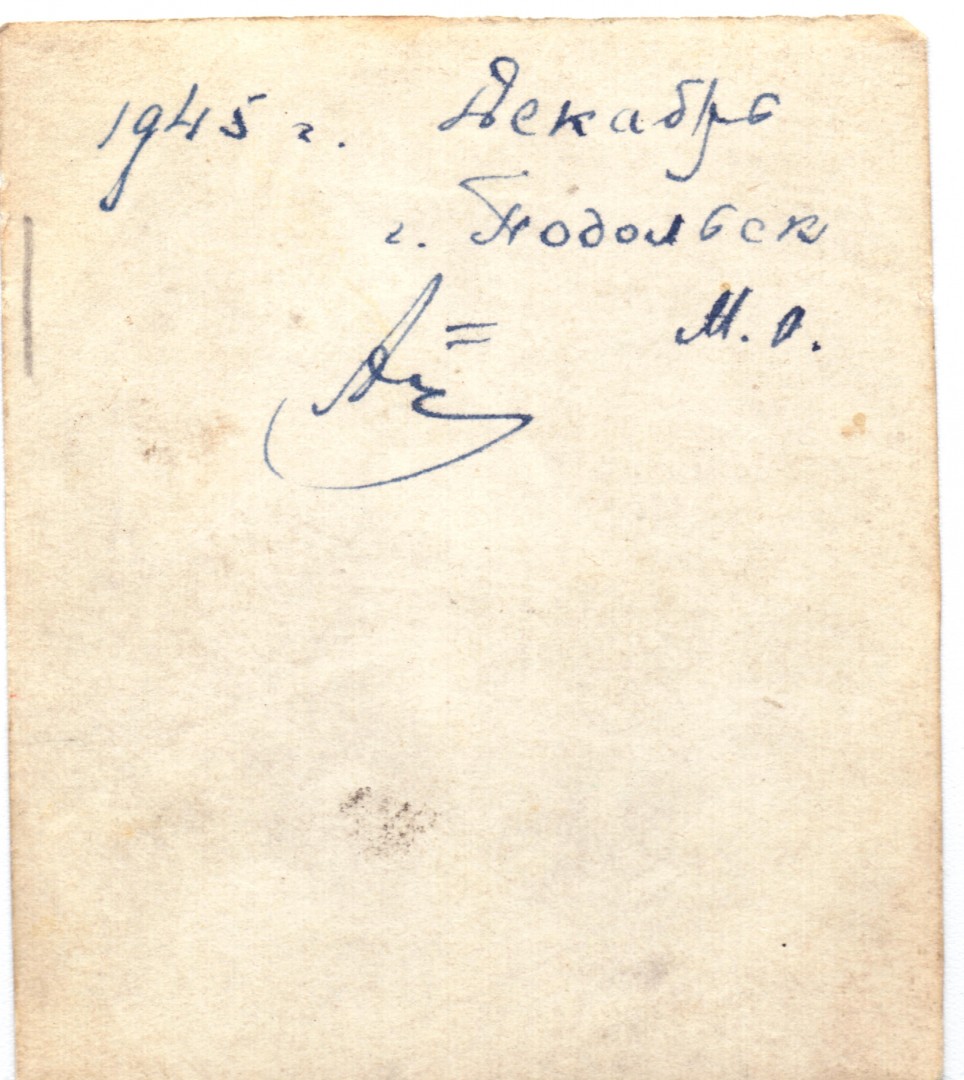 1945 г. Декабрь
г. Подольск
М.О.